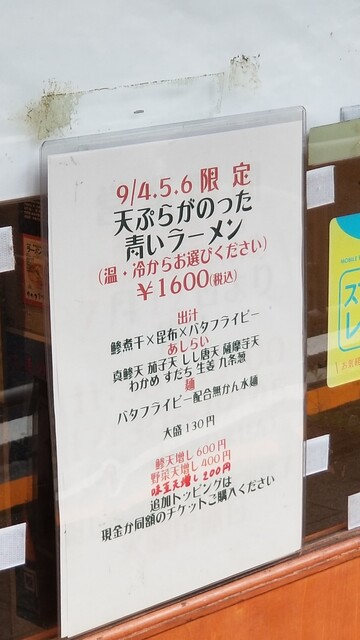 9/4.5.6 限定
天ぷらがのった
青いラーメン
(温・冷からお選びください)
¥1600(税込)
出汁
鯵煮干×昆布×バタフライピー
あしらい
真鯵天 茄子天 しし唐天 薩摩芋天
わかめ すだち 生姜 九条葱
麺
バタフライピー配合無かん水麺
大盛130円
鯵天増し600円
野菜天増し400円
味玉天増し200円
追加トッピングは
現金か同額のチケットご購入ください